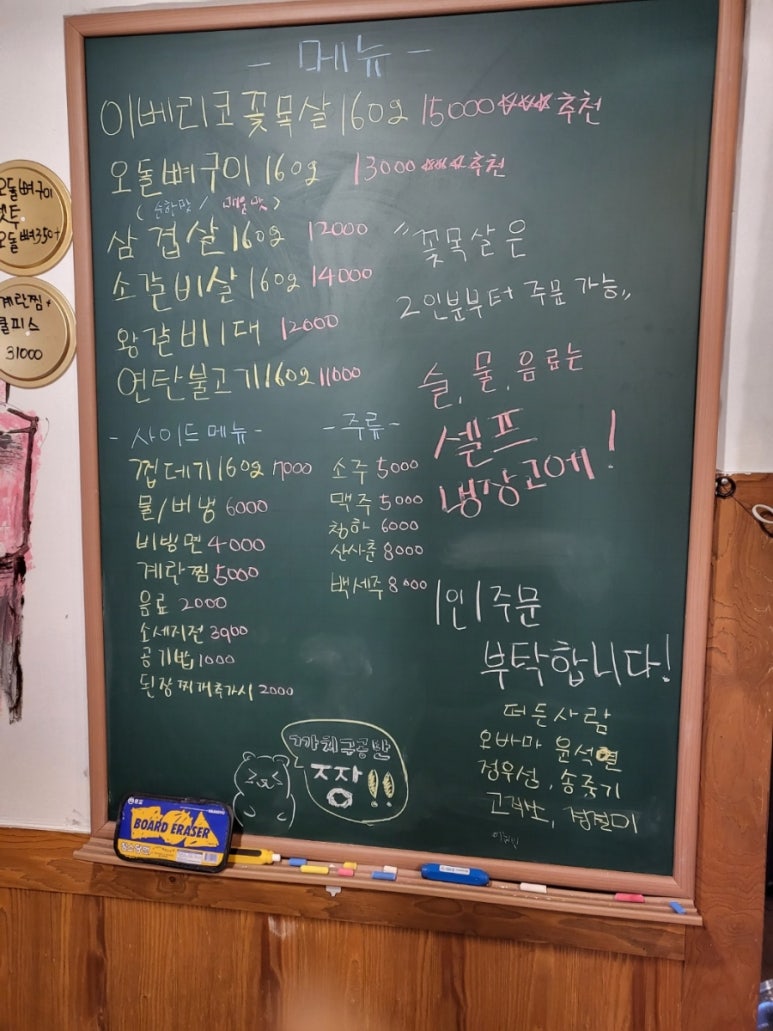 - 메뉴 -
이베리코꽃목살 160g 15000 ☆☆☆ 추천
오돌뼈구이 160g 13000 ☆☆☆ 추천
(순한맛 / 매운맛)
삼겹살 160g 12000
소갈비살 160g 14000
왕갈비 1대 12000
연탄불고기 160g 11000
"꽃목살은
2인분부터 주문 가능"
술, 물, 음료는
셀프
냉장고에!
- 사이드 메뉴 -
껍데기 160g 7000
물/비냉 6000
비빔면 4000
계란찜 5000
음료 2000
소세지전 3900
공기밥 1000
된장찌개추가시 2000
- 주류 -
소주 5000
맥주 5000
청하 6000
산사춘 8000
백세주 8000
1인 1주문
부탁합니다!
떠든사람
오바마 윤석열
정우성, 송중기
짱!!
BOARD ERASER
오돌뼈구이
오돌뼈 350+
계란찜+
쿨피스
31000